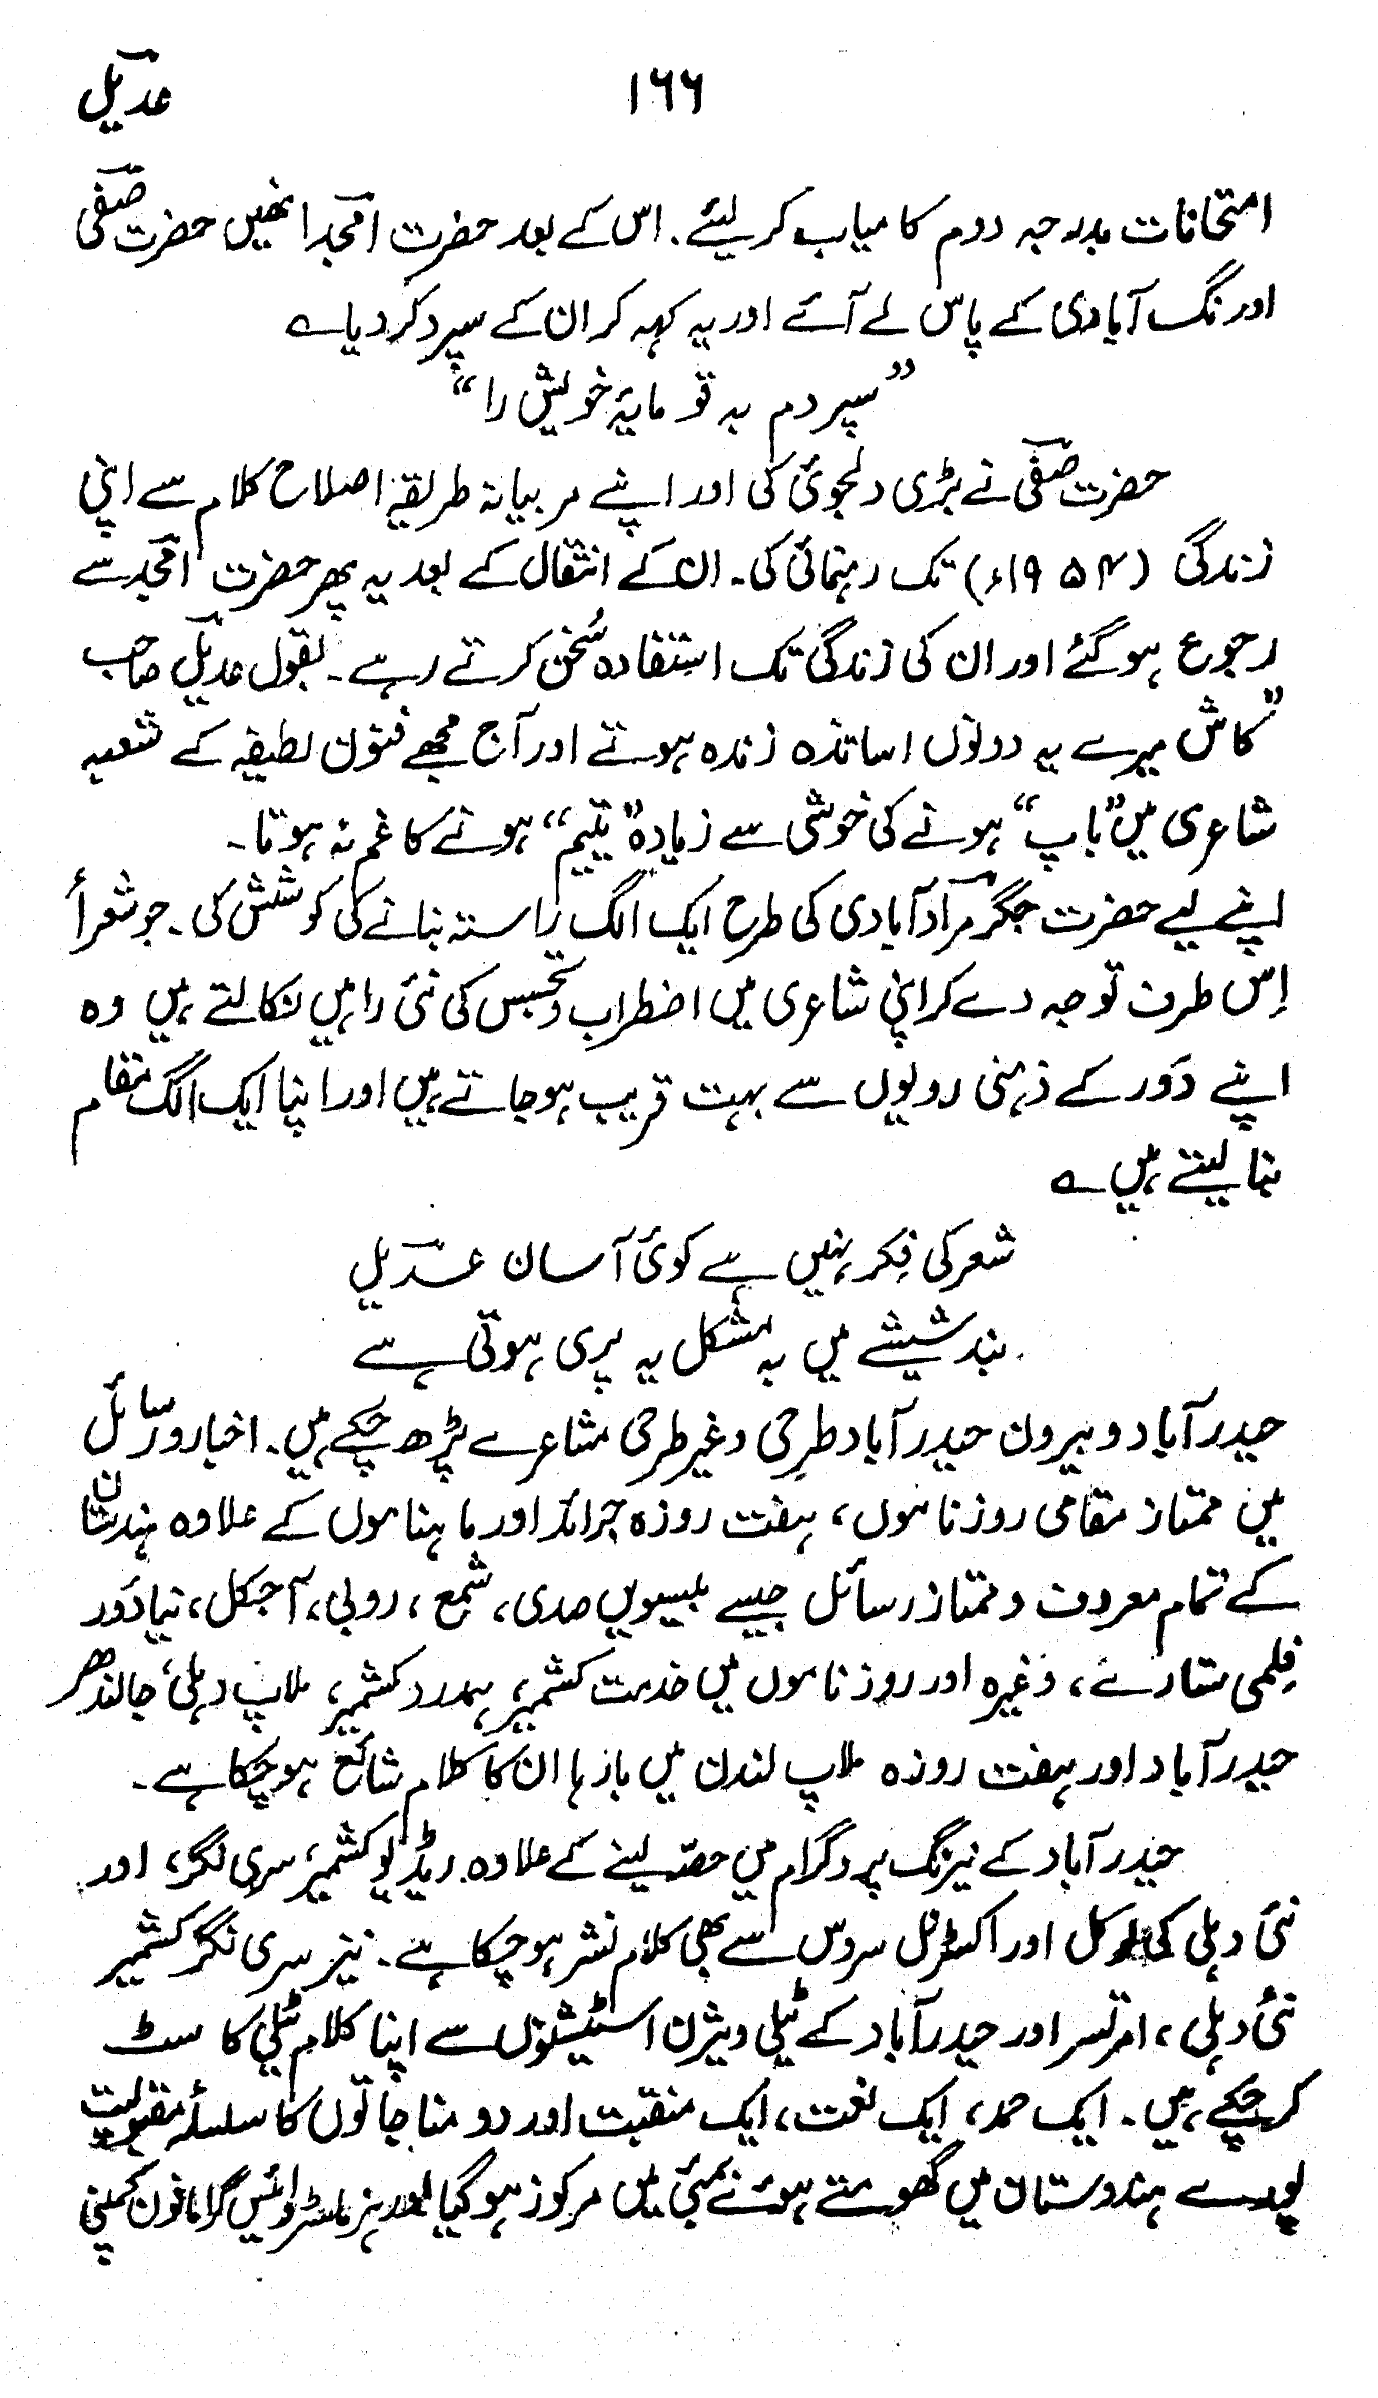 ۱۶۶ عدیل
امتحانات بدرجہ دوم کامیاب کرلیئے۔ اس کے بعد حضرت امجد انھیں حضرت صفی
اورنگ آبادی کے پاس لے آئے اور یہ کہہ کر ان کے سپرد کردیا ؎
”سپردم بہ تو مایۂ خویش را“
حضرت صفی نے بڑی دلجوئی کی اور اپنے مربیانہ طریقۂ اصلاح کلام سے اپنی
زندگی (۱۹۵۴ء) تک رہنمائی کی۔ ان کے انتقال کے بعد یہ پھر حضرت امجد سے
رجوع ہوگئے اور ان کی زندگی تک استفادہ سُخن کرتے رہے۔ بقول عدیل صاحب
”کاش میرے یہ دونوں اساتذہ زندہ ہوتے اور آج مجھے فنون لطیفہ کے شعبہ
شاعری میں ”باپ“ ہونے کی خوشی سے زیادہ ”یتیم“ ہونے کا غم نہ ہوتا۔
اپنے لیے حضرت جگر مرادآبادی کی طرح ایک الگ راستہ بنانے کی کوشش کی۔ جو شعرأ
اِس طرف توجہ دے کر اپنی شاعری میں اضطراب و تجسس کی نئی راہیں نکالتے ہیں وہ
اپنے دَور کے ذہنی رویوں سے بہت قریب ہوجاتے ہیں اور اپنا ایک الگ مقام
بنا لیتے ہیں ؎
شعر کی فِکر نہیں ہے کوئی آسان عدیل
بند شیشے میں بہ مشکل یہ پری ہوتی ہے
حیدرآباد و بیرون حیدرآباد طرحی و غیر طرحی مشاعرے پڑھ چکے ہیں۔ اخبار و رسائل
میں ممتاز مقامی روزناموں، ہفت روزہ جرائد اور ماہناموں کے علاوہ ہندستان
کے تمام معروف و ممتاز رسائل جیسے بیسویں صدی، شمع، روبی، آجکل، نیا دَور
فِلمی ستارے، وغیرہ اور روزناموں میں خدمت کشمیر، ہمدرد کشمیر، ملاپ دہلی، جالندھر
حیدرآباد اور ہفت روزہ ملاپ لندن میں بارہا ان کا کلام شائع ہوچکا ہے۔
حیدرآباد کے نیرنگ پروگرام میں حصّہ لینے کے علاوہ ریڈیو کشمیر، سری نگر، اور
نئی دہلی کی لوکل اور اکسٹرنل سروس سے بھی کلام نشر ہوچکا ہے۔ نیز سری نگر کشمیر
نئی دہلی، امرتسر اور حیدرآباد کے ٹیلی ویژن اسٹیشنوں سے اپنا کلام ٹیلی کاسٹ
کرچکے ہیں۔ ایک حمد، ایک نعت، ایک منقبت اور دو مناجاتوں کا سلسلۂ مقبولیت
پورے ہندوستان میں گھومتے ہوئے بمبئی میں مرکوز ہوگیا اور ہز ماسٹر وائیس گرامافون کمپنی